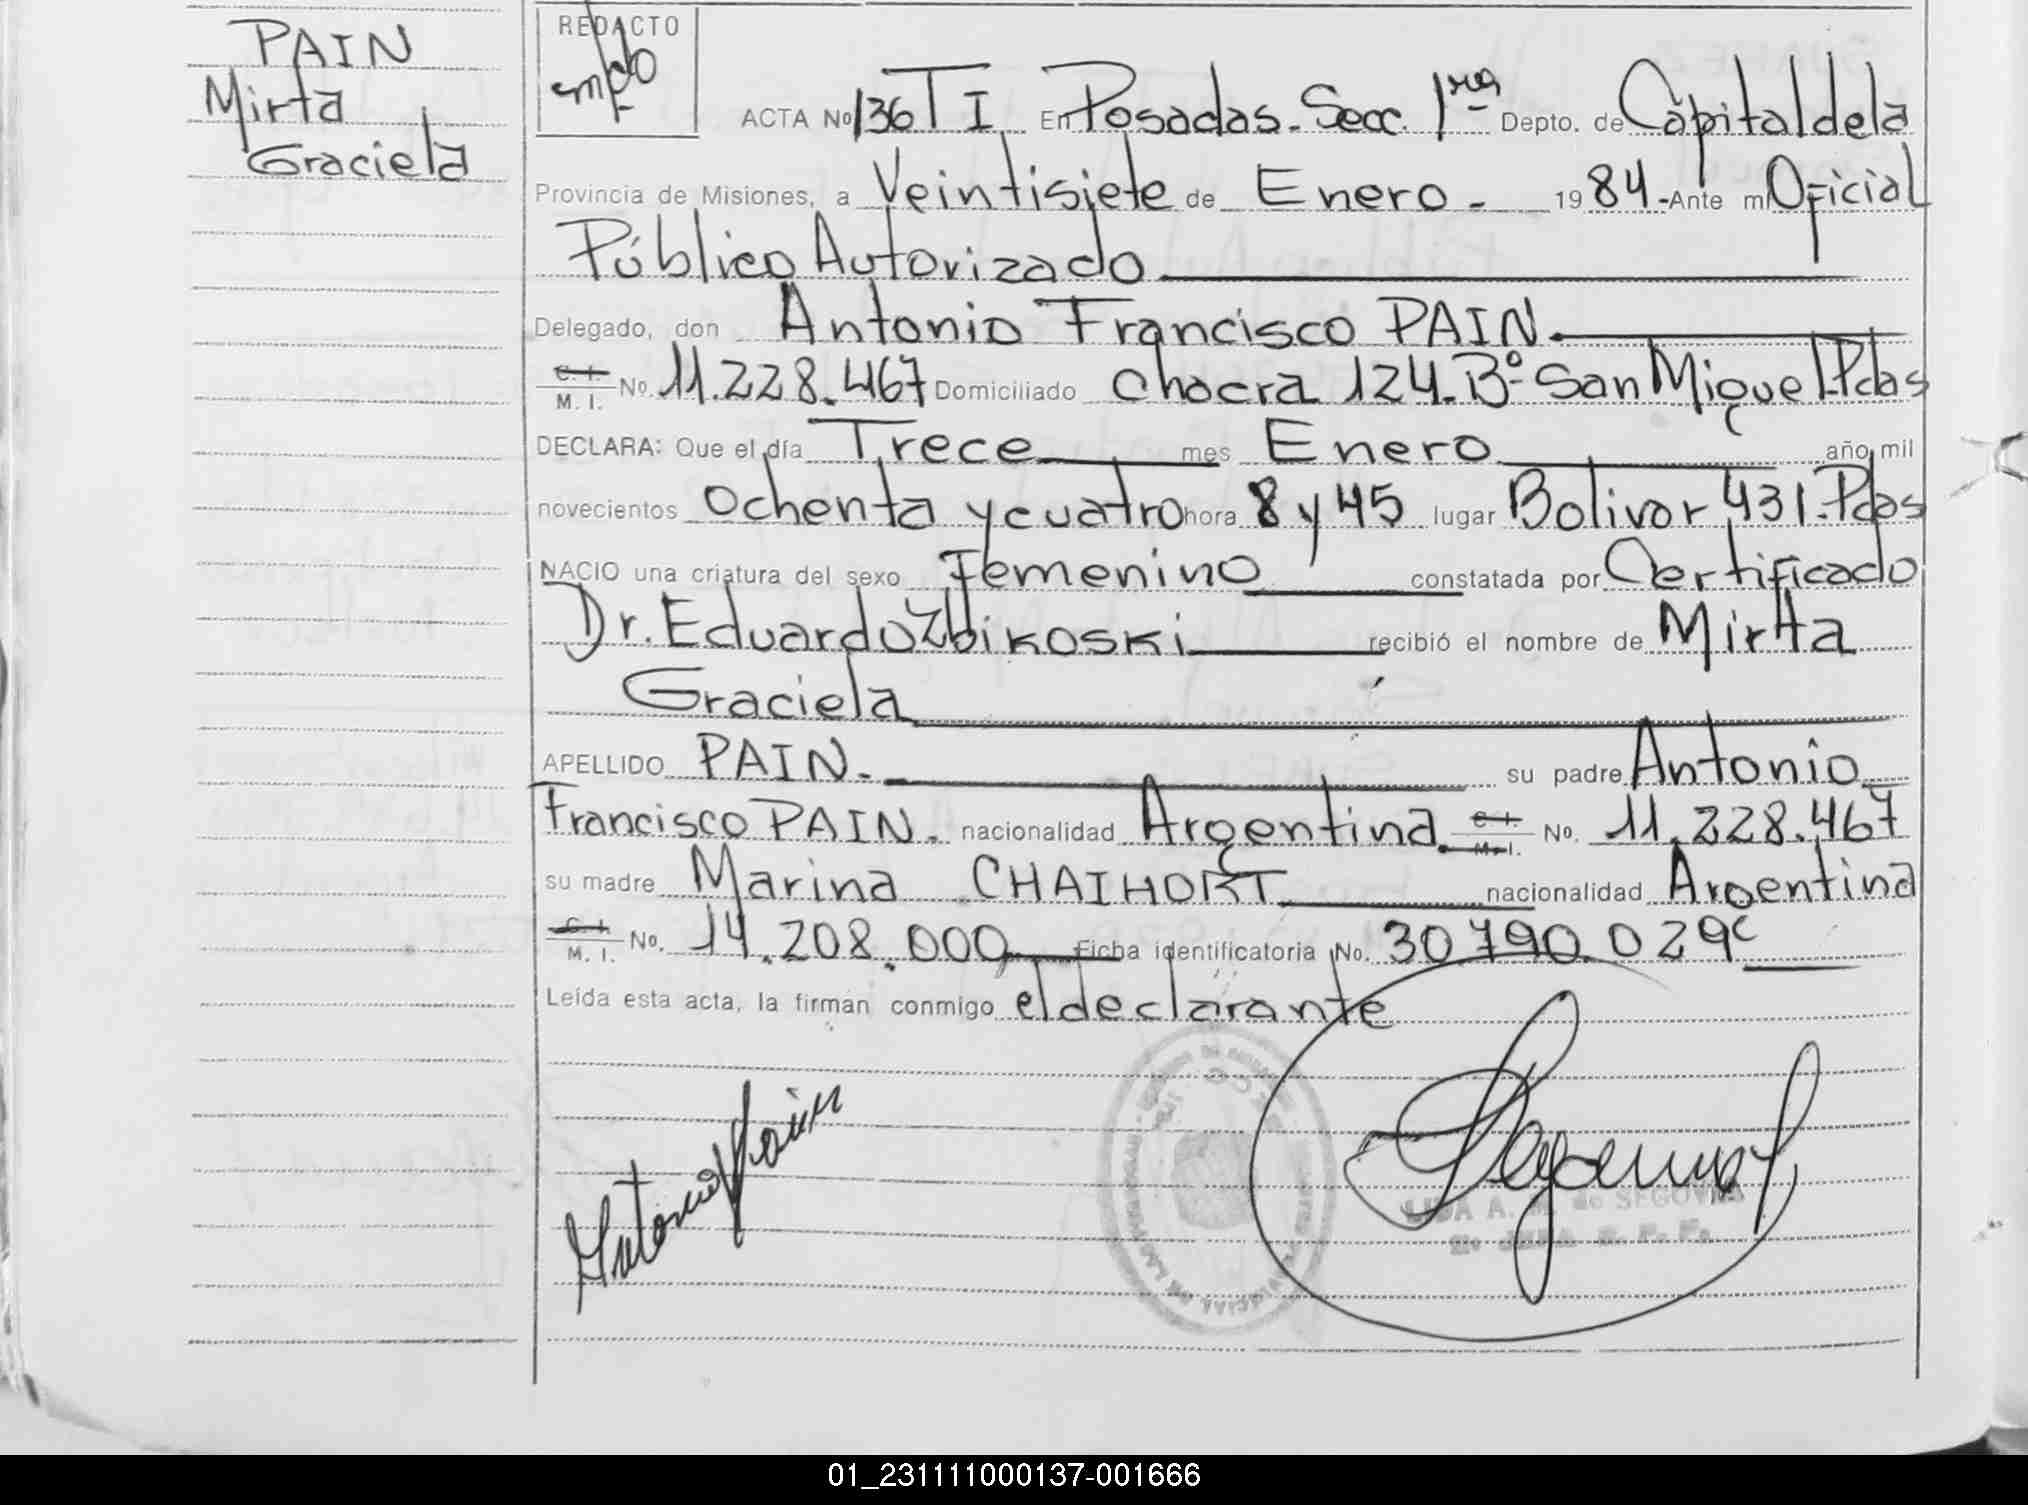 PAIN
Mirta
Graciela
REDACTO
ACTA Nº 136 T I En Posadas. Secc. 1ra Depto. de Capital de la
Provincia de Misiones, a Veintisiete de Enero. 1984. Ante mi Oficial
Público Autorizado
Delegado, don Antonio Francisco PAIN.
C. I. M. I. No. 11.228.467 Domiciliado Chacra 124. Bº. San Miguel. Pdas
DECLARA: Que el día Trece mes Enero año mil
novecientos Ochenta y cuatro hora 8 y 45 lugar Bolivar 431. Pdas
NACIO una criatura del sexo Femenino constatada por Certificado
Dr. Eduardo Zbikoski recibió el nombre de Mirta
Graciela
APELLIDO PAIN. su padre Antonio
Francisco PAIN. nacionalidad Argentina. C. I. M. I. Nº. 11.228.467
su madre Marina CHAIHORT nacionalidad Argentina
C. I. M. I. No. 14.208.000 Ficha identificatoria No. 30790.029
Leída esta acta, la firman conmigo el declarante
Antonio Pain
A. M. de SEGOVIA
JEFA
01_231111000137-001666